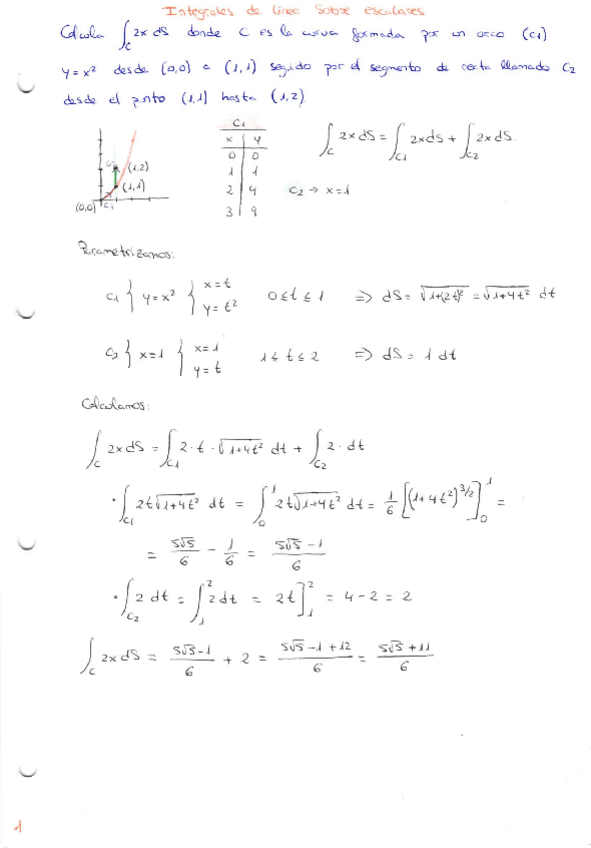 Integrales de línea sobre escalares
Calcula ∫_C 2x dS donde C es la curva formada por un arco (C1)
y = x² desde (0,0) a (1,1) seguido por el segmento de recta llamado C2
desde el punto (1,1) hasta (1,2).
C1
x | y
0 | 0
1 | 1
2 | 4
3 | 9
C2 (1,2)
(1,1)
(0,0) C1
∫_C 2x dS = ∫_C1 2x dS + ∫_C2 2x dS.
C2 → x=1
Parametrizamos:
C1 } y = x² { x=t y=t² 0 ≤ t ≤ 1 => dS = √(1+(2t)²) = √(1+4t²) dt
C2 } x=1 { x=1 y=t 1 ≤ t ≤ 2 => dS = 1 dt
Calculamos:
∫_C 2x dS = ∫_C1 2·t·√(1+4t²) dt + ∫_C2 2·dt
· ∫_C1 2t√(1+4t²) dt = ∫_0^1 2t√(1+4t²) dt = 1/6 [(1+4t²)^(3/2)]_0^1 =
= 5√5/6 - 1/6 = (5√5-1)/6
· ∫_C2 2 dt = ∫_1^2 2 dt = 2t]_1^2 = 4-2 = 2
∫_C 2x dS = (5√5-1)/6 + 2 = (5√5-1+12)/6 = (5√5+11)/6
1